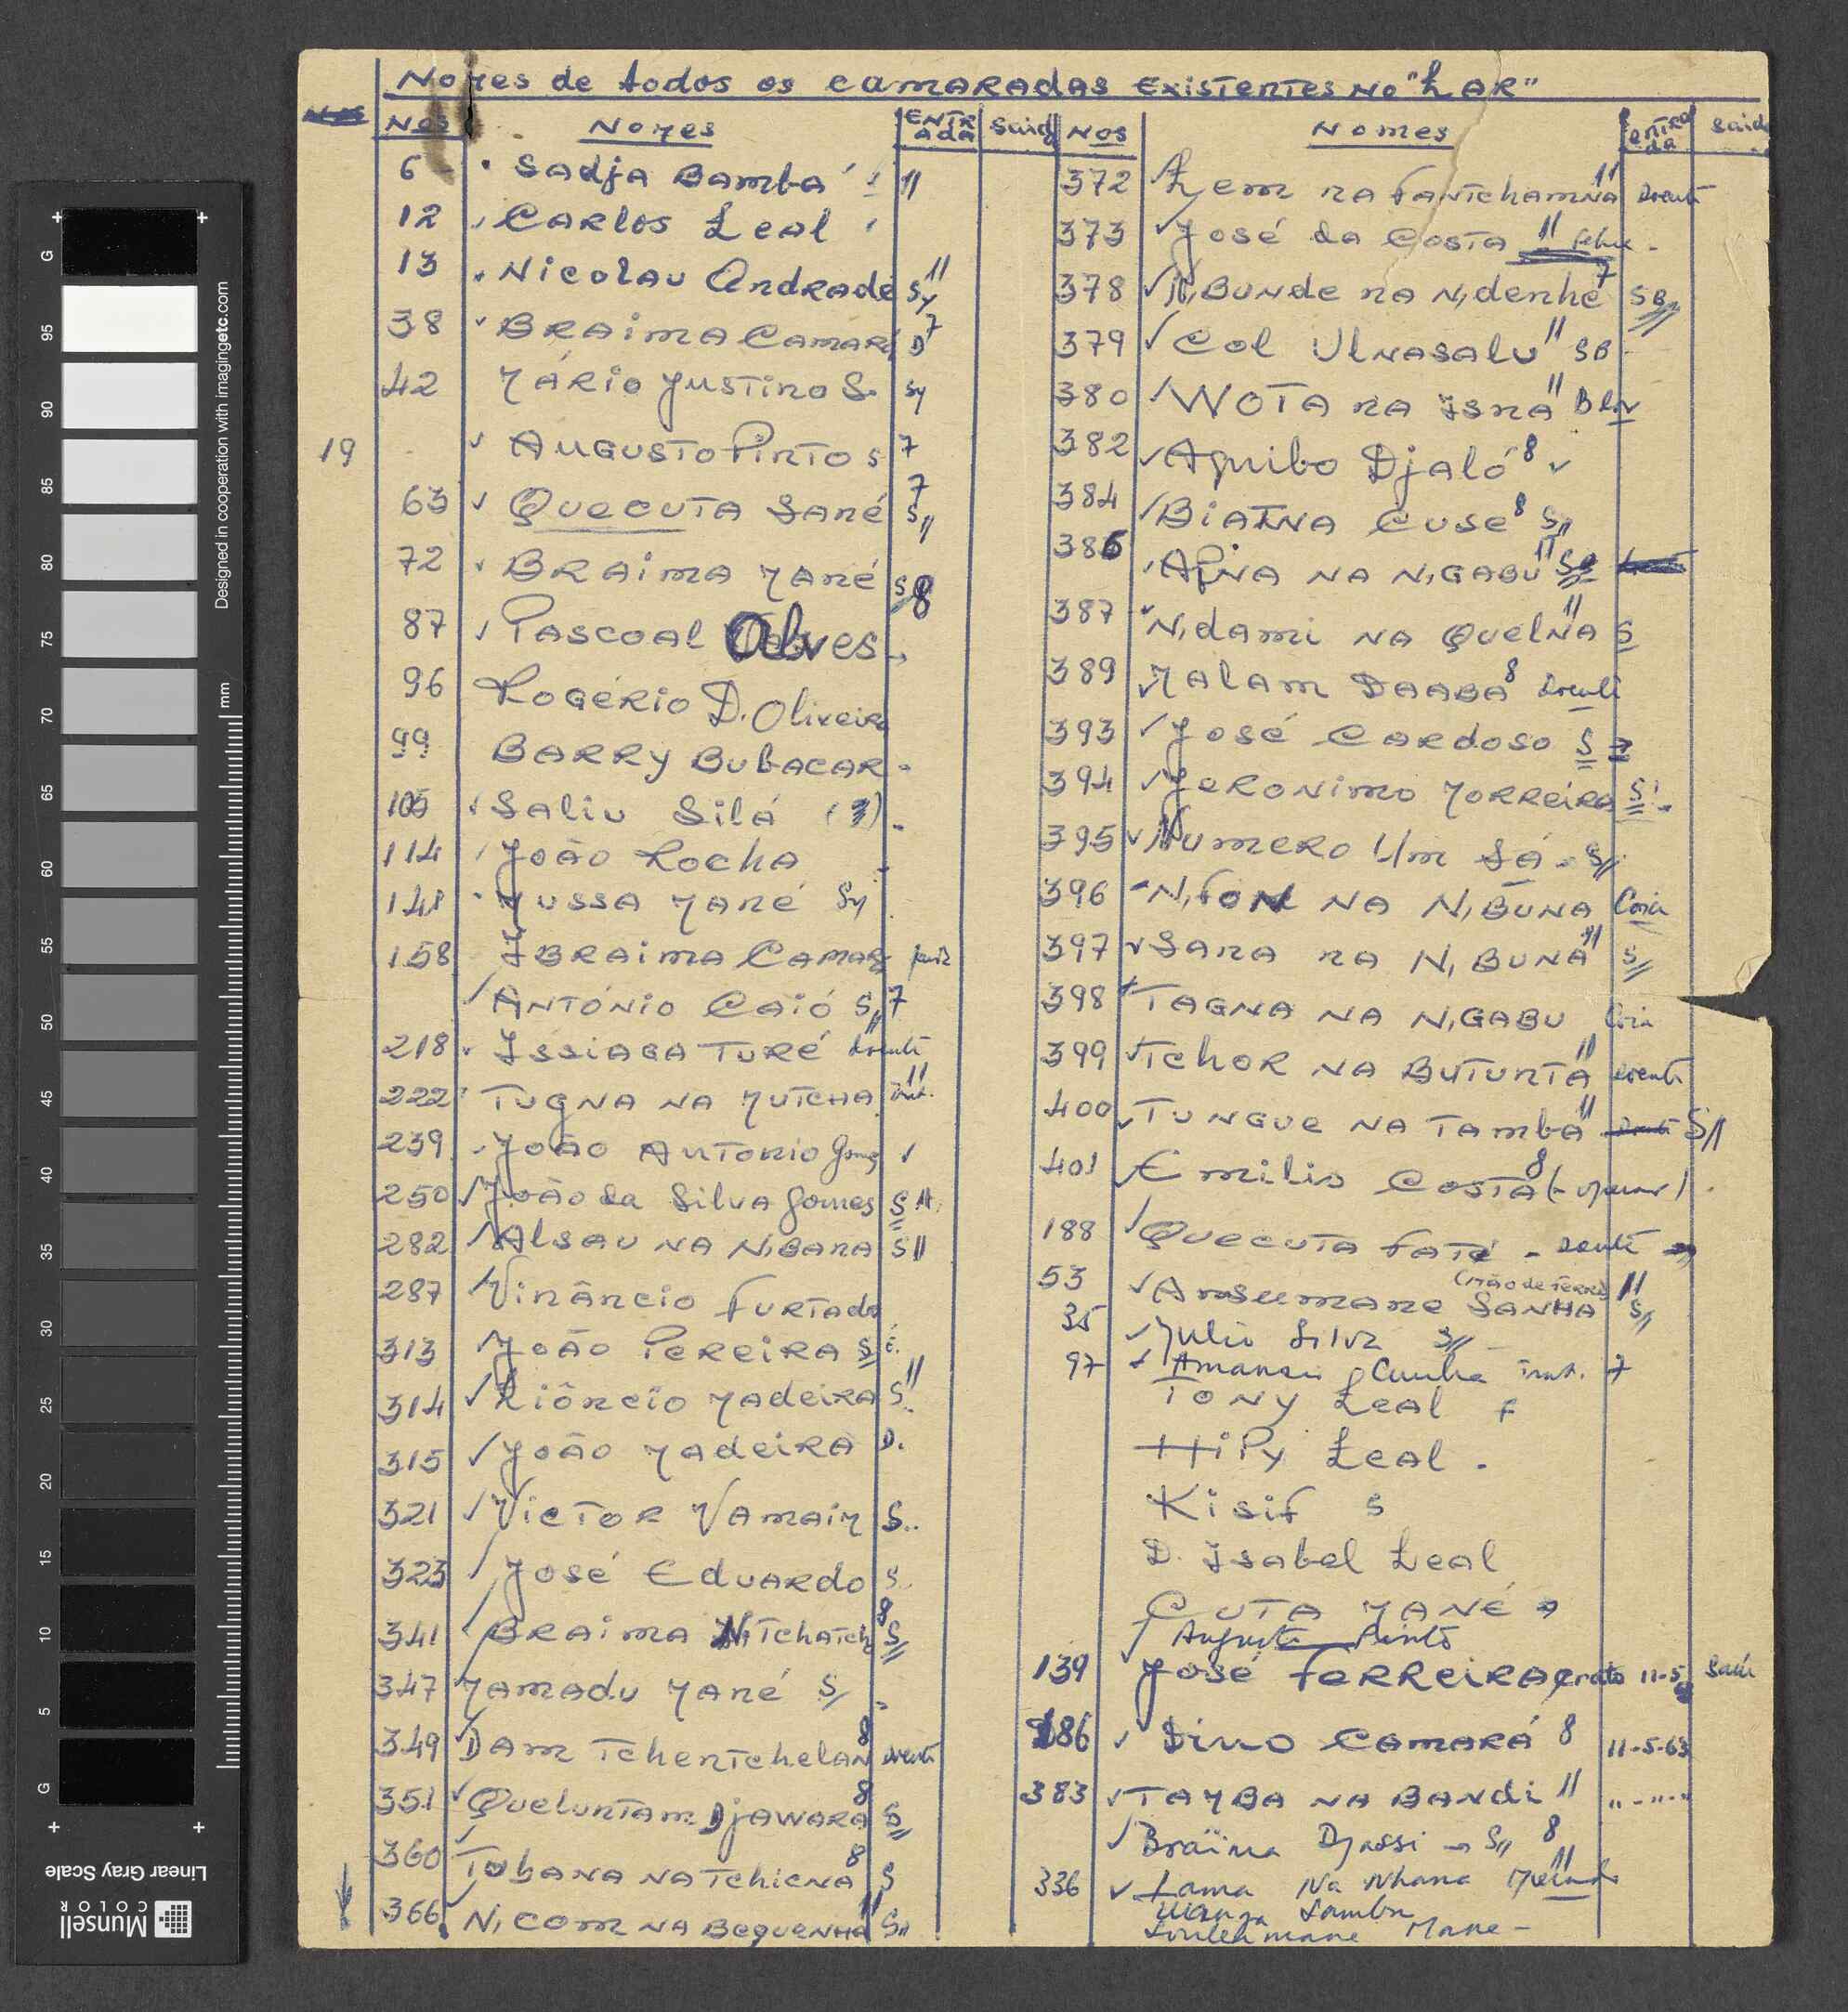 Nomes de todos os camaradas existentes no "Lar"
Nos Nomes Entrada Saida
6 Sadja Bamba 11
12 Carlos Leal
13 Nicolau Andrade Sy 11
38 Braima Camará D 7
42 Mário Justino S. sy
19 Augusto Pinto s 7
63 Quecuta Sané S 7
72 Braima Mané S 8
87 Pascoal Alves
96 Rogério D. Oliveira
99 Barry Bubacar
105 Saliu Silá (3)
114 João Rocha
141 Mussa Mané Sy
158 Ibraima Camará
António Caió S 7
218 Issiaga Turé doente 11
222 Tugna na Mutcha 11
239 João Antonio Gomes
250 João da Silva Gomes S 11
282 Alsau na N,Bana S 11
287 Vinâncio Furtado
313 João Pereira S
314 Liôncio Madeira S 11
315 João Madeira D.
321 Victor Vamaim S..
323 José Eduardo S
341 Braima N,Tchatch 8 S
347 Mamadu Mané S
349 Dam Tchentchelan 8 doente
351 Queluntam Djawara 8 S
360 Tubana na Tchicna 8 S
366 N,com na Bequenha 11 S
Nos Nomes Entrada Saida
372 Lem na Fantchamna 11 Doente
373 José da Costa 11 febre
378 N,Bunde na N,denhe 7 SB
379 Col Ulnasalu 11 SB
380 Wota na Isna 11
382 Aquibo Djaló 8
384 Biatna Cuse 8 S
386 Apna na N,Gabu 11
387 N,dami na Quelna 11 S
389 Malam Daaba 8 Doente
393 José Cardoso S
394 Jeronimo Morreira S
395 Numero Um Sá S
396 N,Fon na N,Buna Coria
397 Sana na N,Buna 11 S
398 Tagna na N,Gabu Coria
399 Tchor na Butunta 11 doente
400 Tungue na Tamba 11 S
401 Emilio Costa 8
188 Quecuta Fati - doente
(Mão de Ferro)
53 Ansumane Sanha 11 S
35 Julio Silva S
97 Amancio Cunha inst. 7
Tony Leal
Hipy Leal
Kisif S
D. Isabel Leal
Cuta Mané
Augusto Pinto
139 José Ferreira Crato 11-5 Saiu
186 Dino Camará 8 11-5-63
383 Tamba na Bandi 11 " - " - "
Braïma Djassi S 8
336 Lama Na Nhana 11
Lamba
Mane
Designed in cooperation with imagingetc.com
mm
G 95 90 85 80 75 70 65 60 55 50 45 40 35 30 25 20 15 10 5 G
Linear Gray Scale
Munsell COLOR